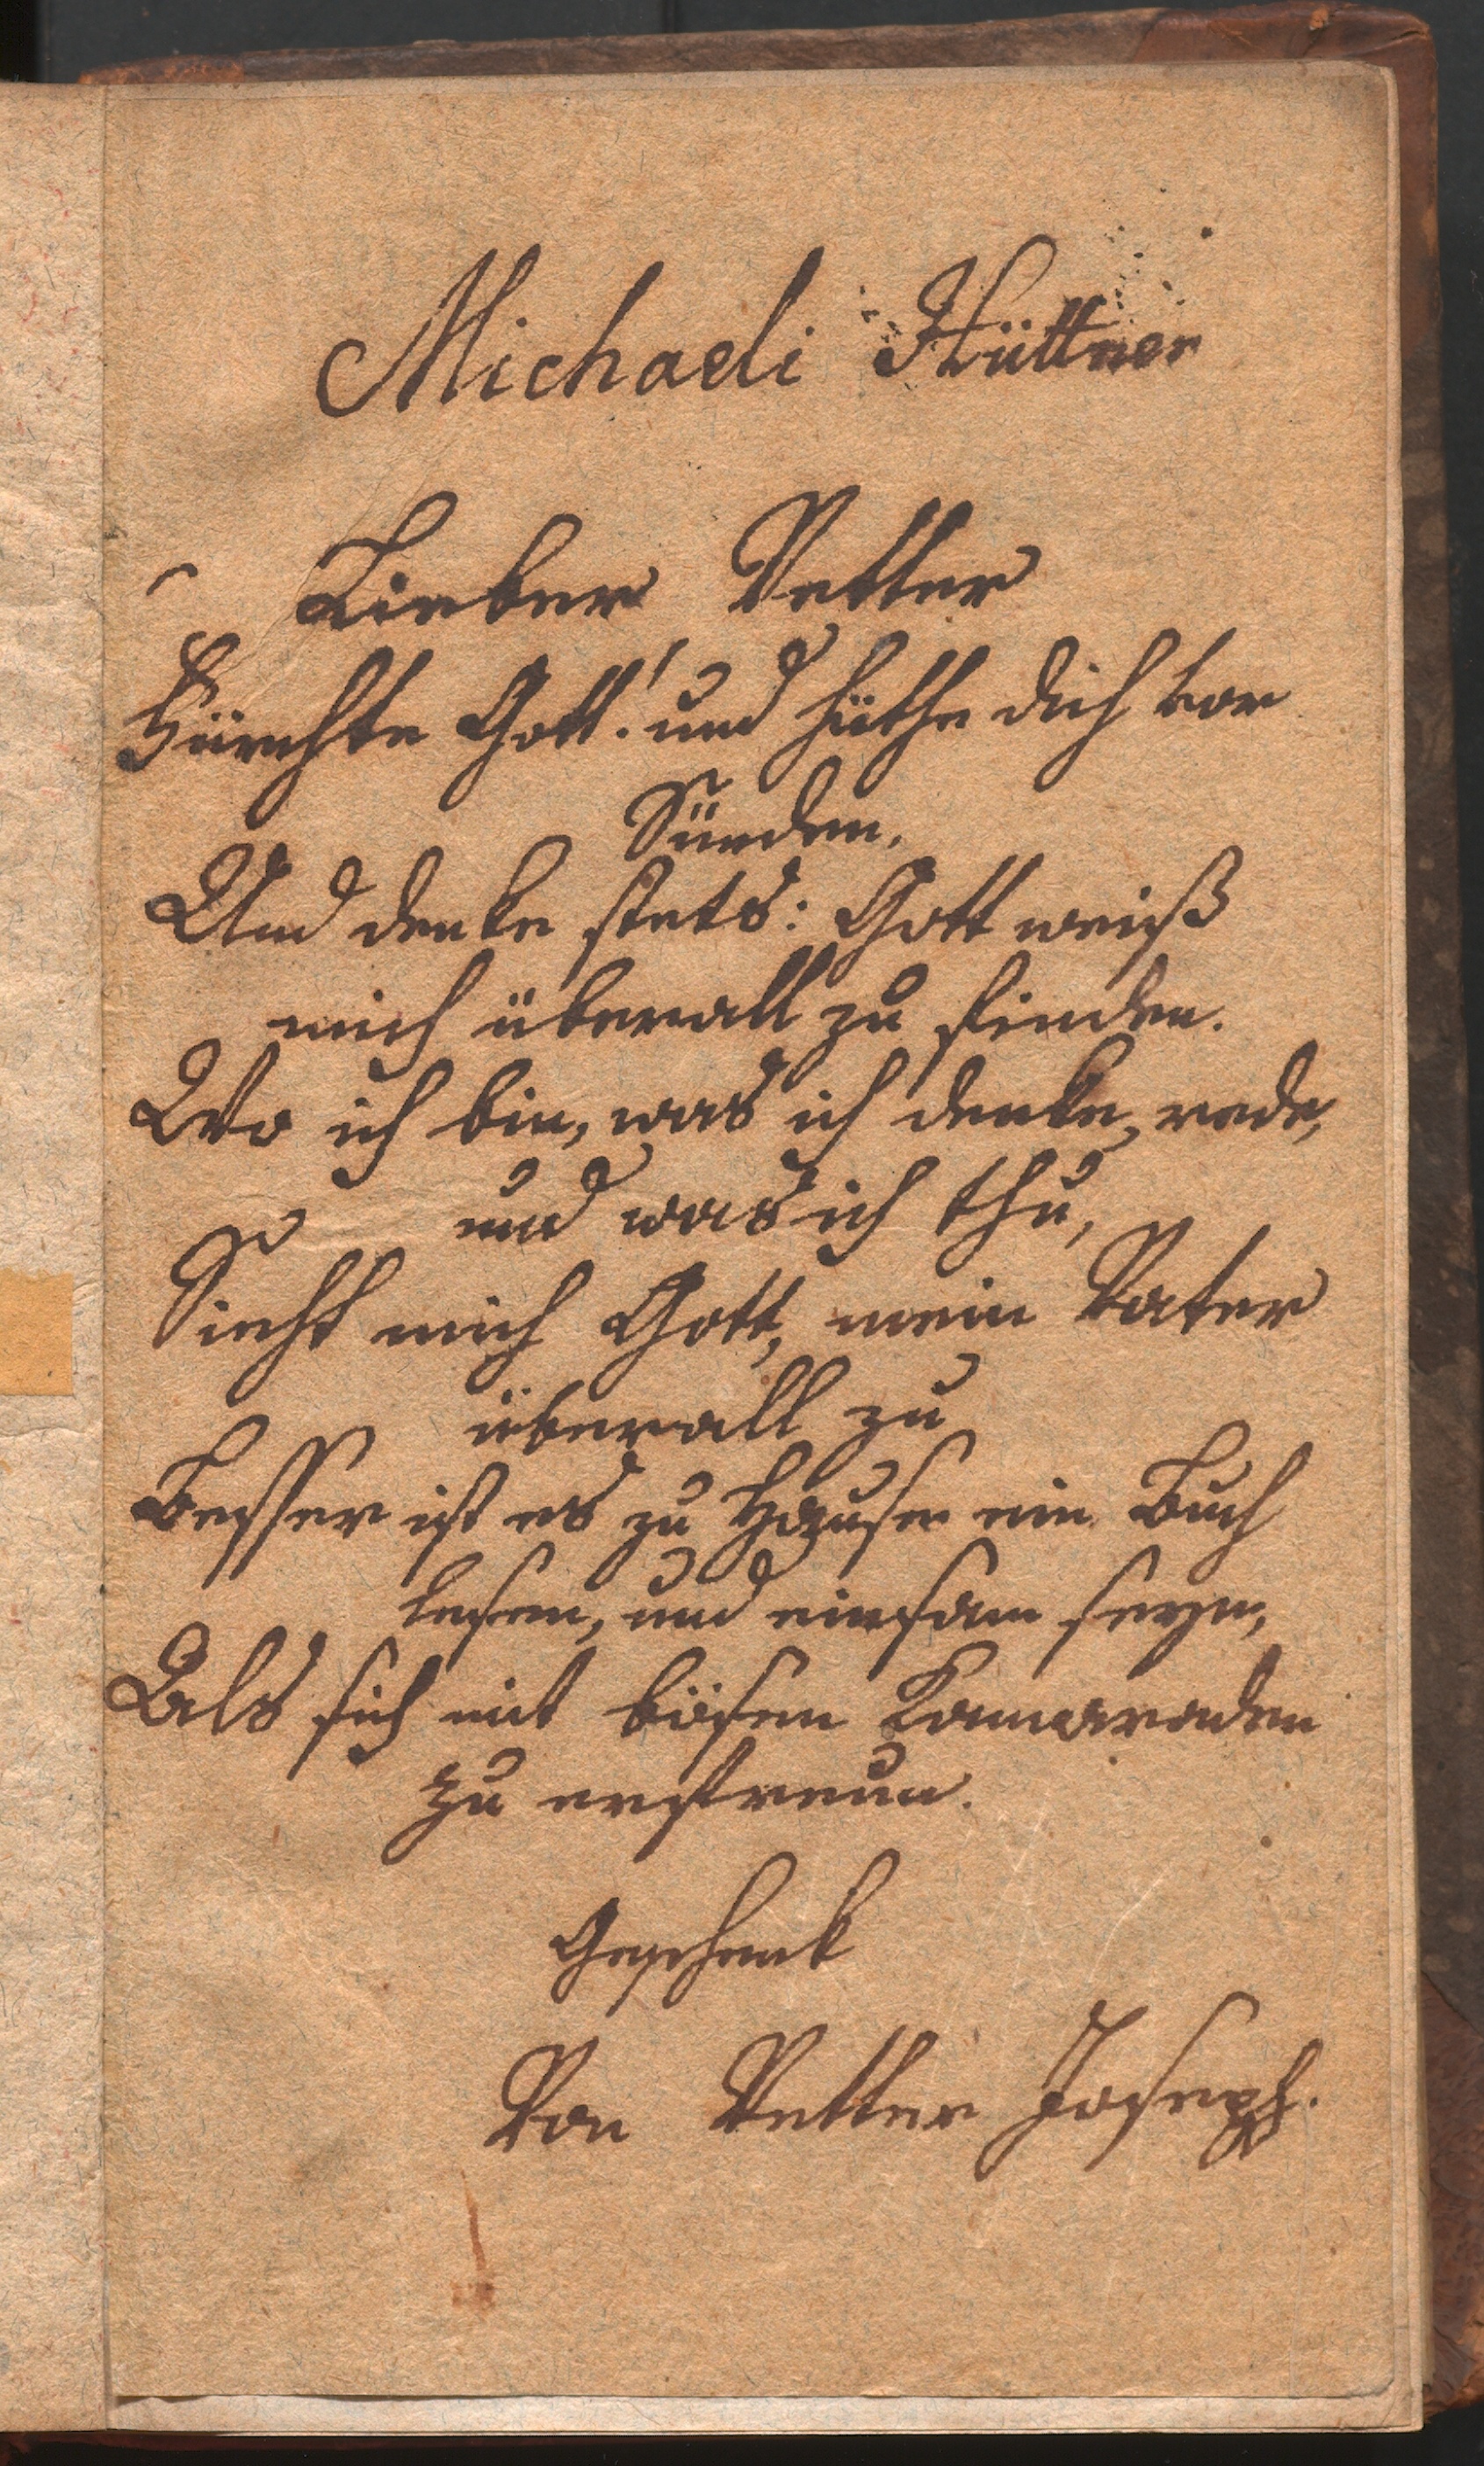 Michaeli Hüttner
Lieber Vetter
Fürchte Gott! und hüthe dich vor
Sünden,
Und denke stets: Gott weiß
mich überall zu finden.
Wo ich bin, was ich denke, rede,
und was ich thu,
Sieht mich Gott, mein Vater
überall zu
Besser ist es zu Hause ein Buch
lesen, und einsam seyn,
Als sich mit bösen Kamaraden
zu erfreun.
Geschenk
Von Vetter Joseph.